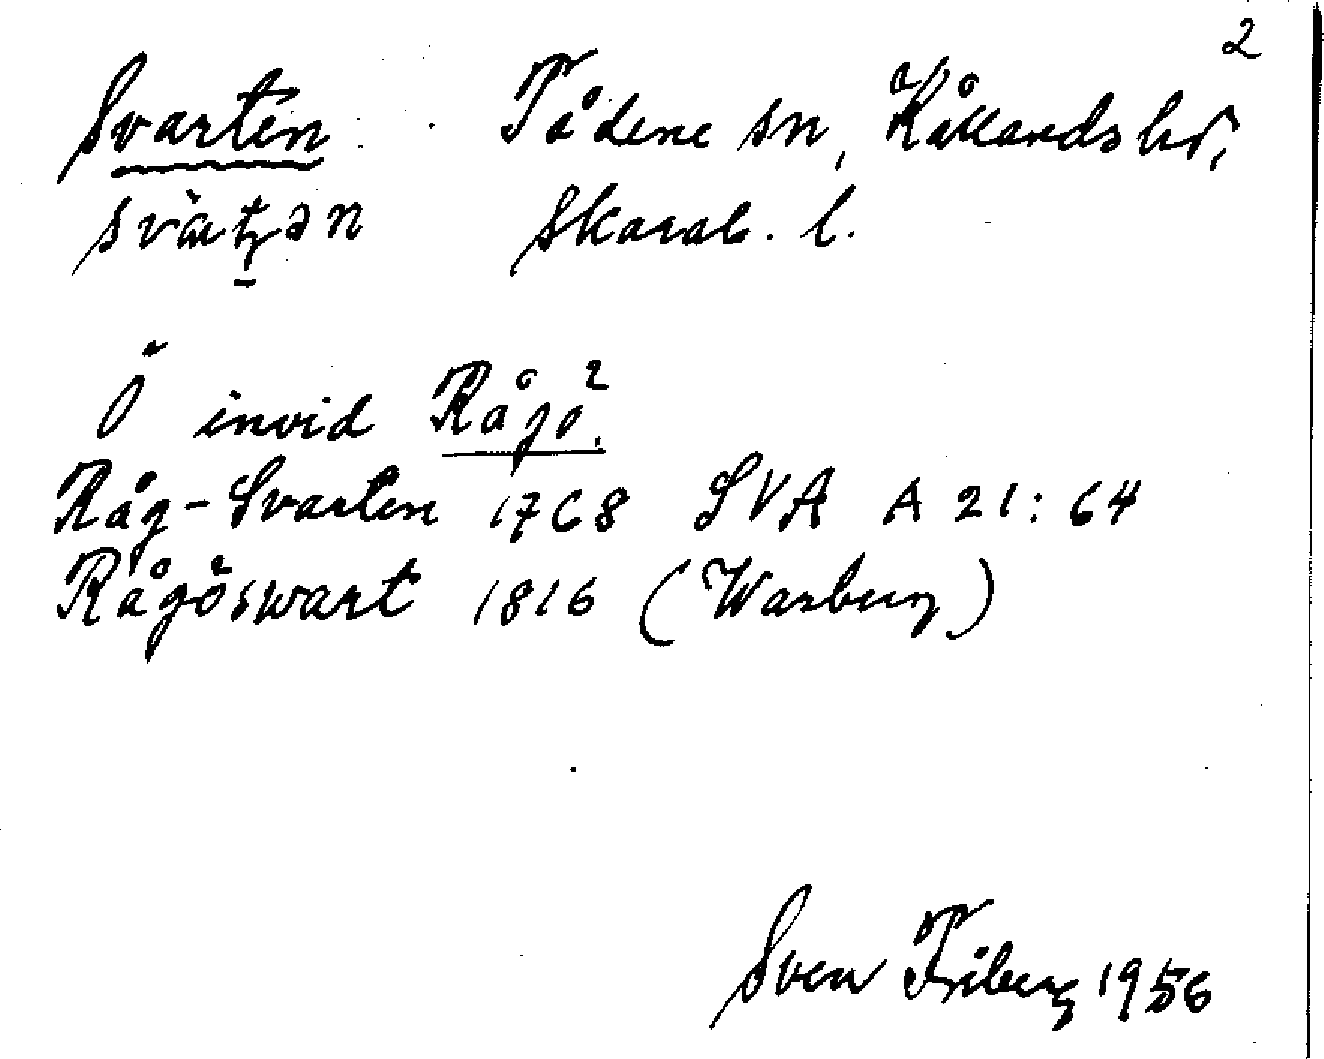 2
Svarten Tådene sn, Kållands hd,
Skarab. l.
Ö invid Rågö².
Råg-Svarten 1768 SVA A 21:64
Rågöswart 1816 (Warburg)
Sven Friberg 1956